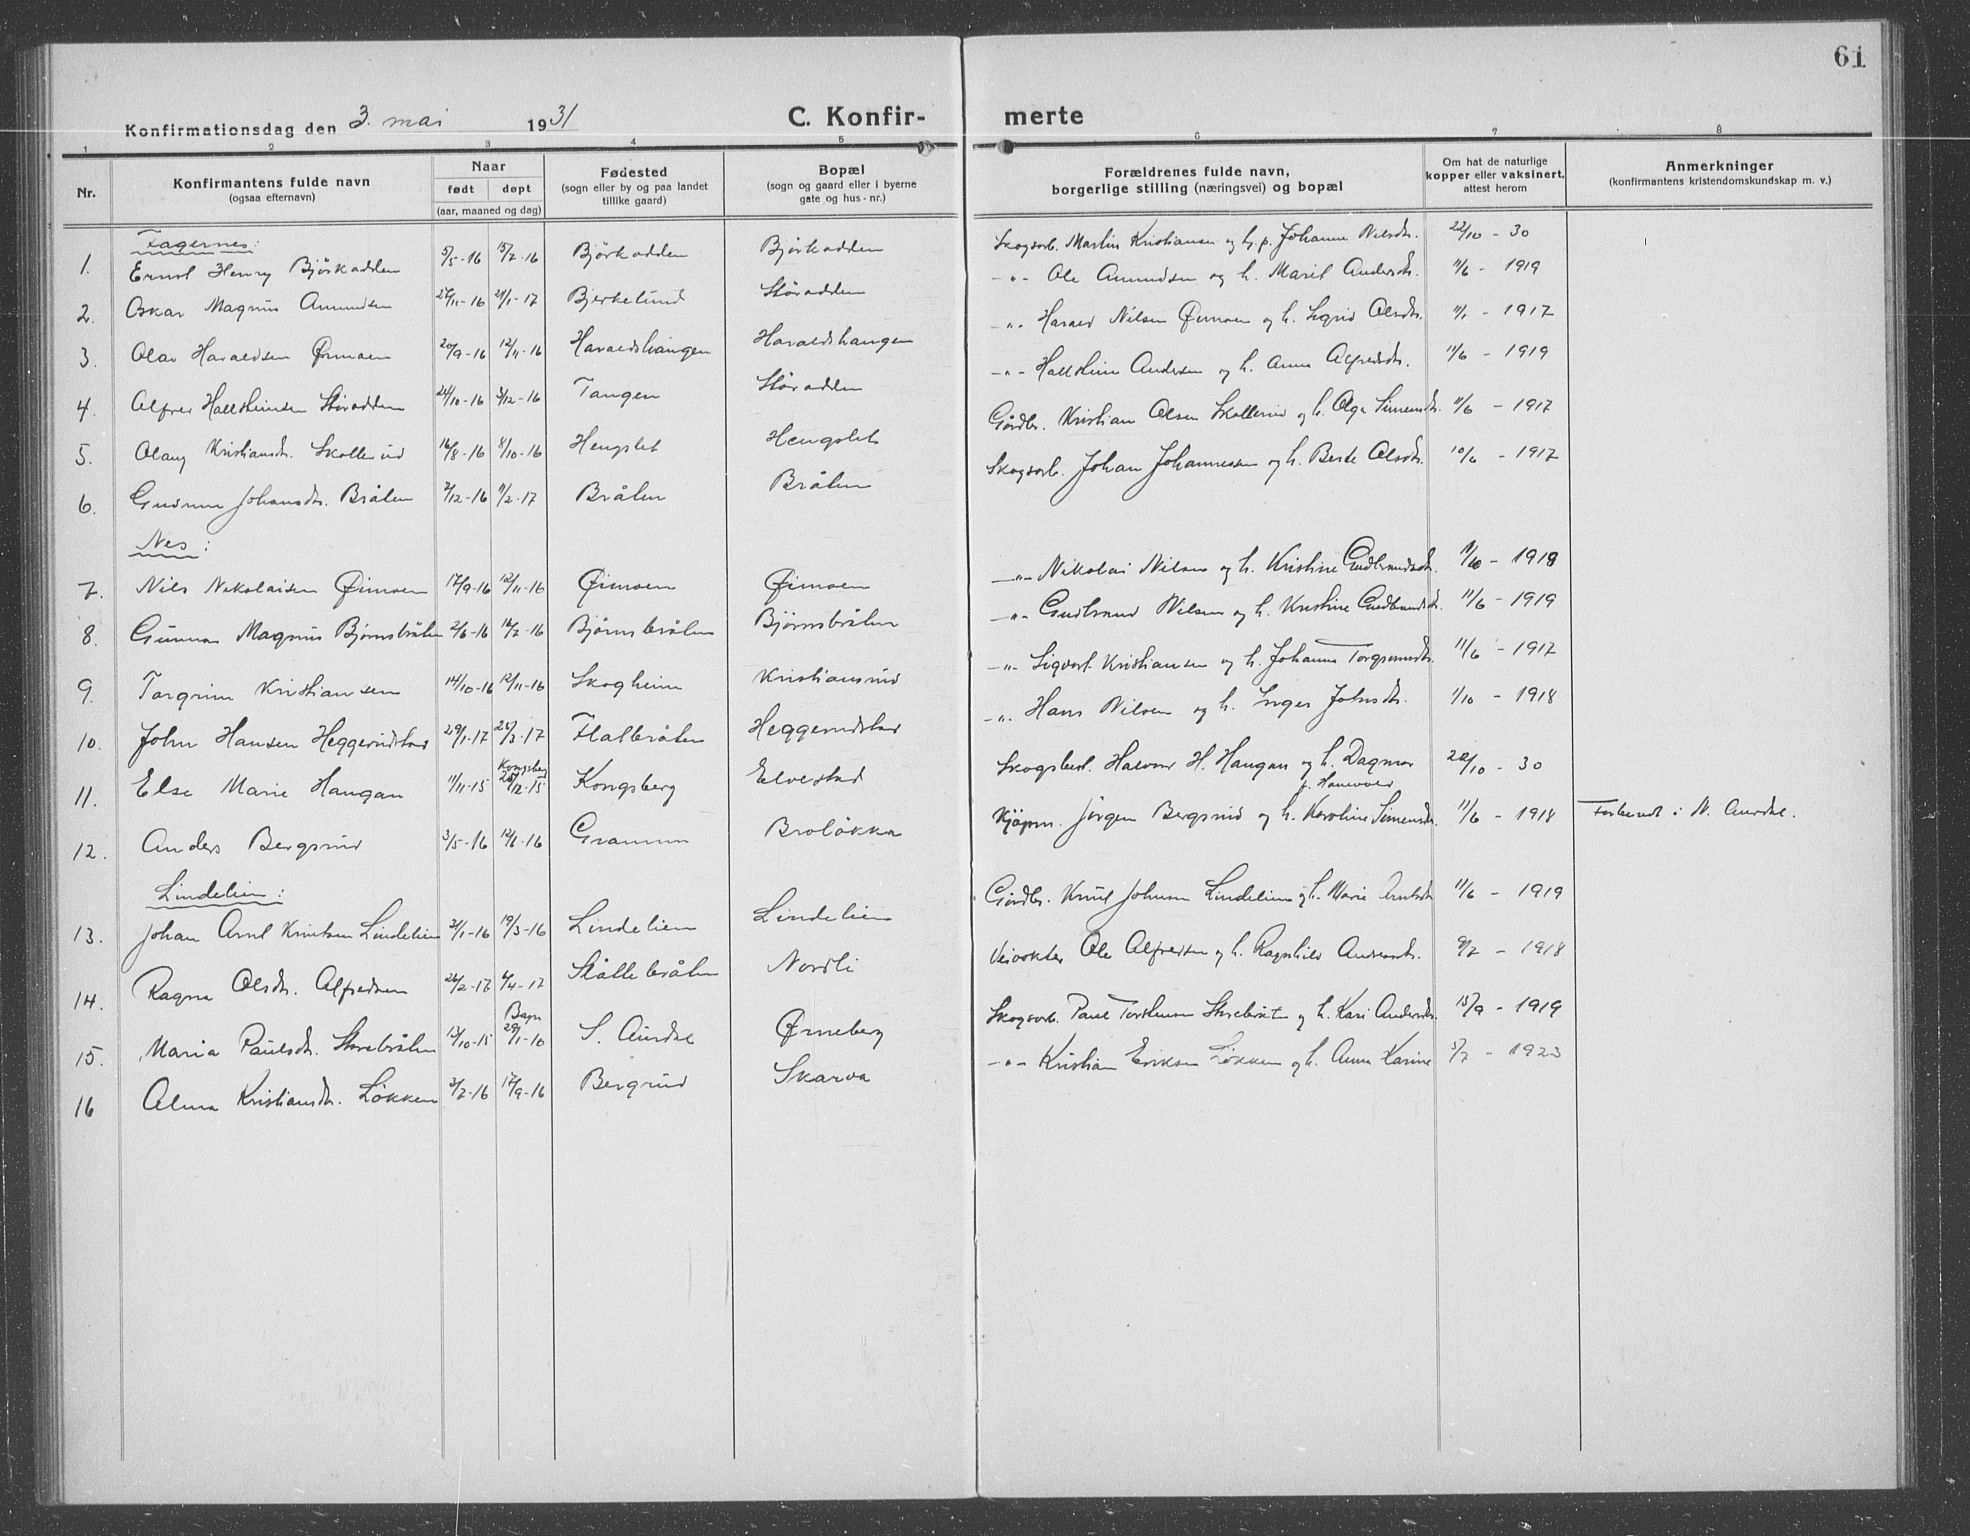 61
Konfirmationsdag den 3. mai 1931
C. Konfir- merte
1 2 3 4 5 6 7 8
Nr.
Konfirmantens fulde navn (ogsaa efternavn)
Naar født døpt (aar, maaned og dag)
Fødested (sogn eller by og paa landet tillike gaard)
Bopæl (sogn og gaard eller i byerne gate og hus-nr.)
Forældrenes fulde navn, borgerlige stilling (næringsvei) og bopæl
Om hat de naturlige kopper eller vaksinert, attest herom
Anmerkninger (konfirmantens kristendomskundskap m. v.)
Fagernes:
1. Ernst Henry Bjørkodden 5/5-16 15/7-16 Bjørkodden Bjørkodden Skogsarb. Martin Kristiansen og h. p. Johanne Nilsdtr. 22/10 - 30
2. Oskar Magnus Amundsen 26/11-16 21/1-17 Bjerkelund Støvodden -"- Ole Amundsen og h. Marit Andersdtr. 11/6 - 1919
3. Olav Haraldsen Øimoen 20/9-16 12/11-16 Haraldshaugen Haraldshaugen -"- Harald Nilsen Øimoen og h. Sigrid Olsdtr. 11/1 - 1917
4. Alfred Hallsteinsen Støvodden 24/10-16 3/12-16 Tangen Støvodden -"- Hallstein Andersen og h. Anna Alfredsdtr. 11/6 - 1919
5. Olaug Kristiansdtr. Skollerud 16/8-16 8/10-16 Hengslet Hengslet Gårdbr. Kristian Olsen Skollerud og h. Olga Simensdtr. 11/6 - 1917
6. Gudrun Johansdtr. Bråten 7/12-16 11/2-17 Bråten Bråten Skogsarb. Johan Johannessen og h. Berte Olsdtr. 10/6 - 1917
Nes:
7. Nils Nikolaisen Øimoen 17/9-16 12/11-16 Øimoen Øimoen -"- Nikolai Nilsen og h. Kristine Gudbrandsdtr. 11/10 - 1918
8. Gunnar Magnus Bjørnsbråten 2/6-16 16/7-16 Bjørnsbråten Bjørnsbråten -"- Gudbrand Nilsen og h. Kristine Gudbrandsdtr. 11/6 - 1919
9. Torgrim Kristiansen 14/10-16 12/11-16 Skogheim Kristiansrud -"- Sigvart Kristiansen og h. Johanna Torgrimsdtr. 11/6 - 1917
10. John Hansen Heggerudstad 29/1-17 24/3-17 Flatbråten Heggerudstad -"- Hans Nilsen og h. Inger Johnsdtr. 1/10 - 1918
11. Else Marie Haugan 11/11-15 Kongsberg 26/12-15 Kongsberg Elvestad Skogsbest. Halvor H. Haugan og h. Dagmar f. 22/10 - 30
12. Anders Bergsrud 3/5-16 12/6-16 Gramum Broløkka Kjøpm. Jørgen Bergsrud og h. Karoline Simensdtr. 11/6 - 1918 Forberedt i N. Aurdal.
Lindelien:
13. Johan Arnt Knutsen Lindelien 31/1-16 19/3-16 Lindelien Lindelien Gårdbr. Knut Johnsen Lindelien og h. Marie Arntsdtr. 11/6 - 1919
14. Ragna Olsdtr. Alfredsen 26/2-17 6/4-17 Ståltebråten Nordli Veivokter Ole Alfredsen og h. Ragnhild Andersdtr. 9/7 - 1918
15. Maria Paulsdtr. Skrebråten 13/10-15 Bagn 29/1-16 S. Aurdal Ørneberg Skogsarb. Paul Torsteinsen og h. Kari Andersdtr. 15/9 - 1919
16 Alma Kristiansdtr. Løkken 3/7-16 17/9-16 Bergrud Skarva -"- Kristian Eriksen Løkken og h. Anna Karine 5/7 - 1923